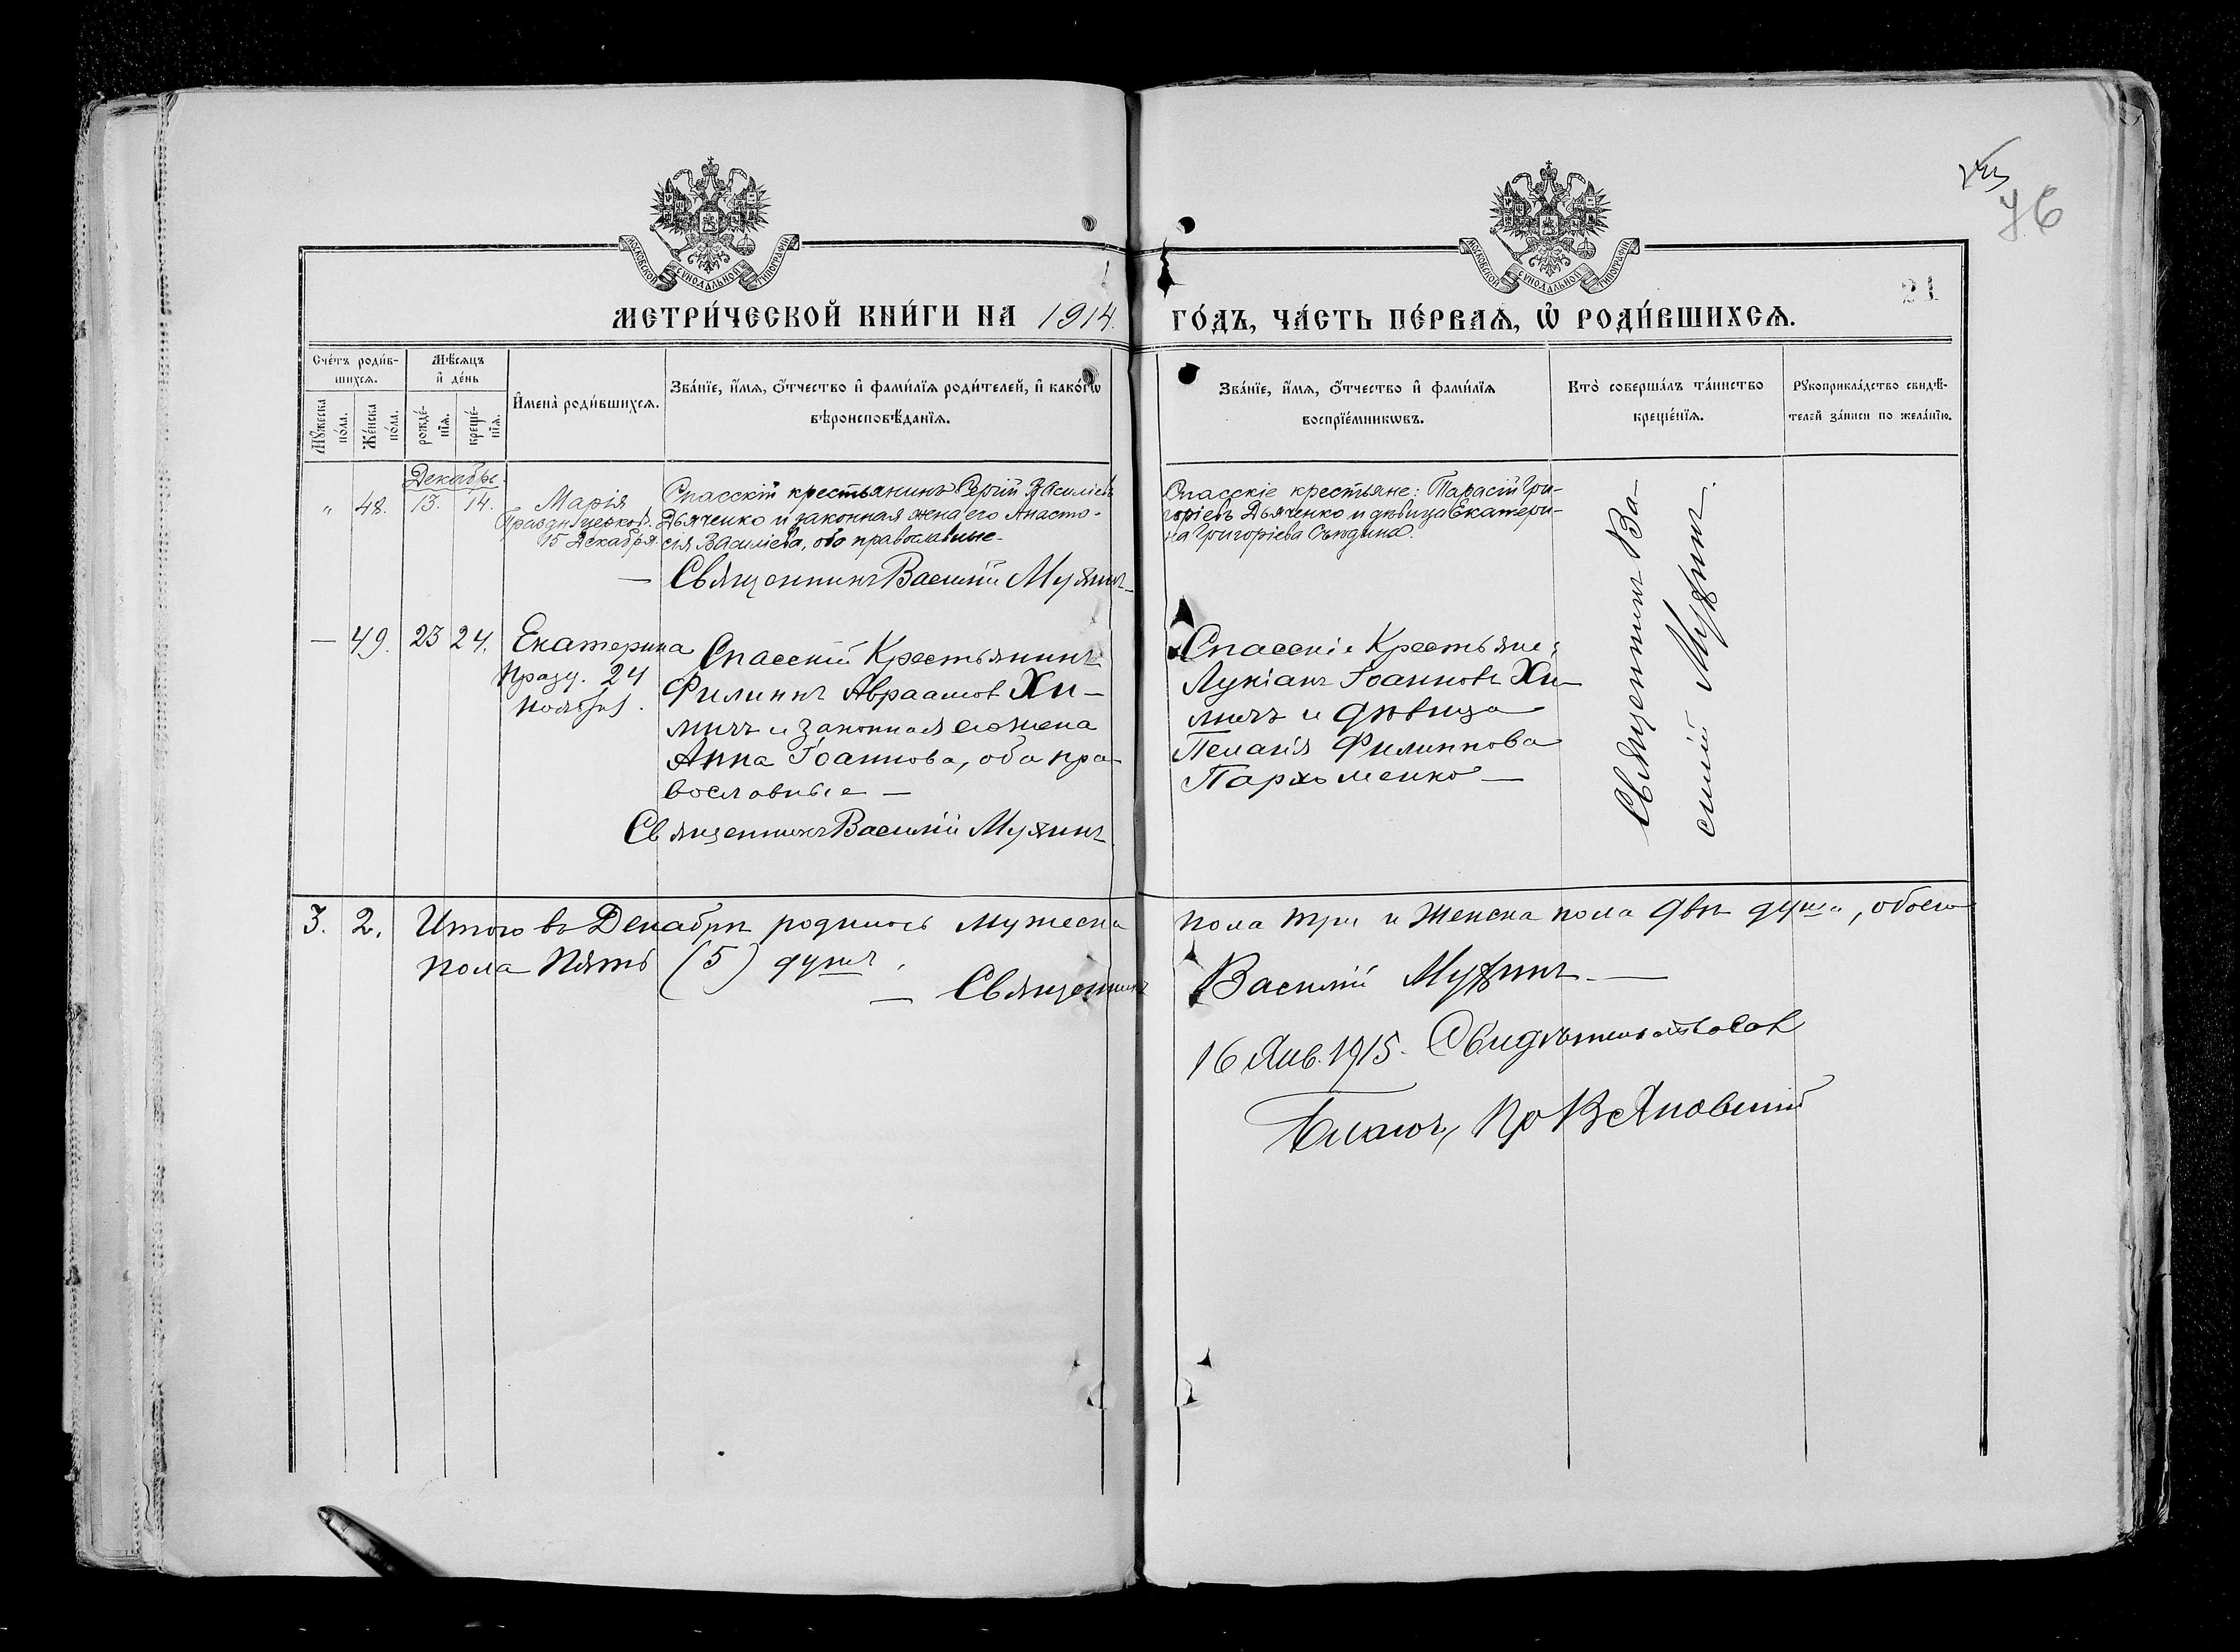 76
МОСКОВСКОЙ СѴНОДАЛЬНОЙ ТИПОГРАФІИ
МОСКОВСКОЙ СѴНОДАЛЬНОЙ ТИПОГРАФІИ
21
МЕТРИ́ЧЕСКОЙ КНИ́ГИ НА 1914. ГО́ДЪ, ЧА́СТЬ ПЕ́РВАѦ, Ѡ РОДИ́ВШИХСѦ.
Сче́тъ роди́в-
шихсѧ.
Мꙋ́жеска
по́ла.
Же́нска
по́ла.
Мѣ́сѧцъ
и҆ де́нь
рожде́-
нїѧ.
креще́-
нїѧ.
И҆мена̀ роди́вшихсѧ.
Зва́нїе, и҆́мѧ, ѻ҆́тчество и҆ фами́лїѧ роди́телей, и҆ како́гѡ
вѣроисповѣ́данїѧ.
Зва́нїе, и҆́мѧ, ѻ҆́тчество и҆ фами́лїѧ
воспрїе́мникѡвъ.
Кто̀ соверша́лъ та́инство
креще́нїѧ.
Рꙋкоприкла́дство свидѣ́-
телей за́писи по жела́нїю.
Декабрь.
" 48. 13. 14.
Марія
Праздн. церков.
15 Декабря.
Спасскій крестьянинъ Сергій Василіевъ
Дьяченко и законная жена его Анаста-
сія Василіева, оба православные.
— Священникъ Василій Мухинъ
Спасскіе крестьяне: Тарасій Гри-
горіевъ Дьяченко и дѣвица Екатери-
на Григоріева
Священникъ Ва-
силій Мухинъ.
— 49. 23 24.
Екатерина
празд. 24
ноября.
Спасскій Крестьянинъ
Филиппъ Авраамов Хи-
мичъ и законная его жена
Анна Іоаннова, оба пра-
вославные —
Священникъ Василій Мухинъ
Спасскіе Крестьяне:
Лукіанъ Іоанновъ Хи-
мичъ и дѣвица
Пелагія Филиппова
Пархоменко —
3. 2. Итого въ Декабрѣ родилось мужеска пола три и женска пола двѣ души, обоего
пола пять (5) душъ.
— Священникъ Василій Мухинъ —
16 Янв. 1915. Свидѣтельствовал
Благоч, Пр В Яновский